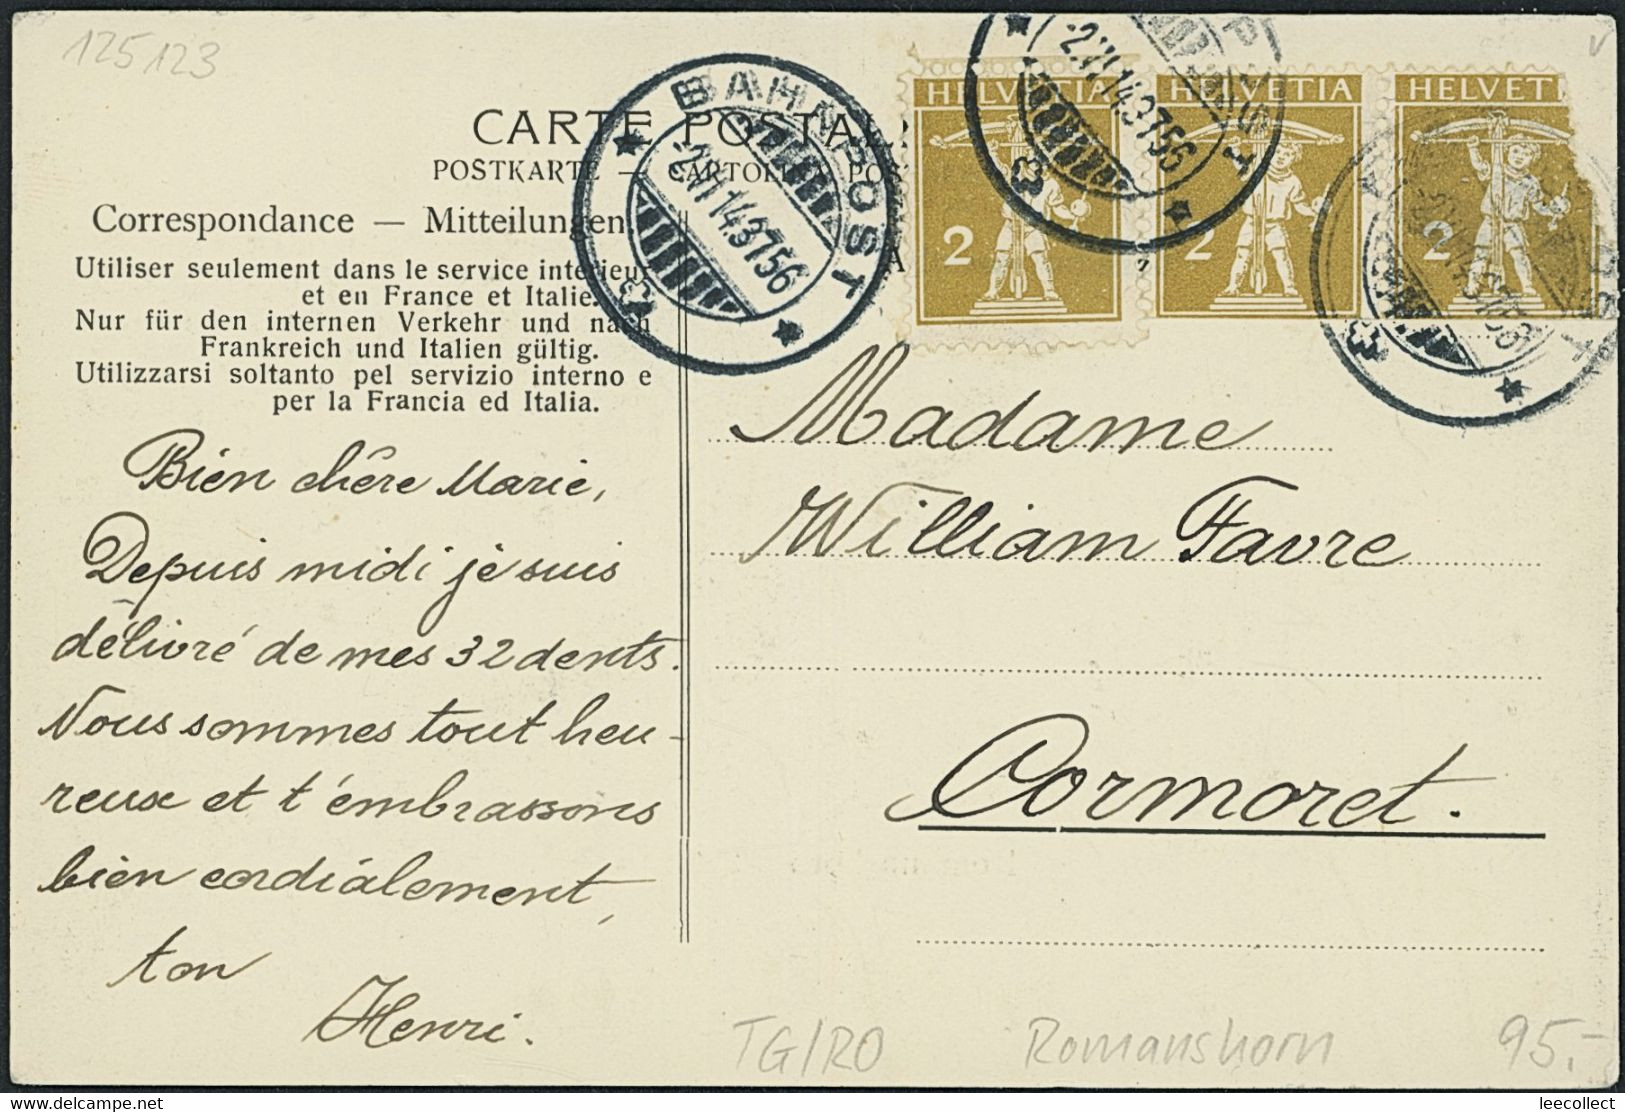 125123
CARTE POSTAL
POSTKARTE — CARTOLINA POS
Correspondance — Mitteilungen
Utiliser seulement dans le service intérieur
et en France et Italie.
Nur für den internen Verkehr und nach
Frankreich und Italien gültig.
Utilizzarsi soltanto pel servizio interno e
per la Francia ed Italia.
BAHNPOST
-2.VI14.3756
HELVETIA
2
BAHNPOST
-2.VI14.3756
HELVETIA
2
HELVETI
2
Bien chère Marie,
Depuis midi je suis
délivré de mes 32 dents.
Nous sommes tout heu-
reux et t'embrassons
bien cordialement,
ton
Henri.
Madame
William Favre
Cormoret.
TG/RO Romanshorn 95.-
leecollect